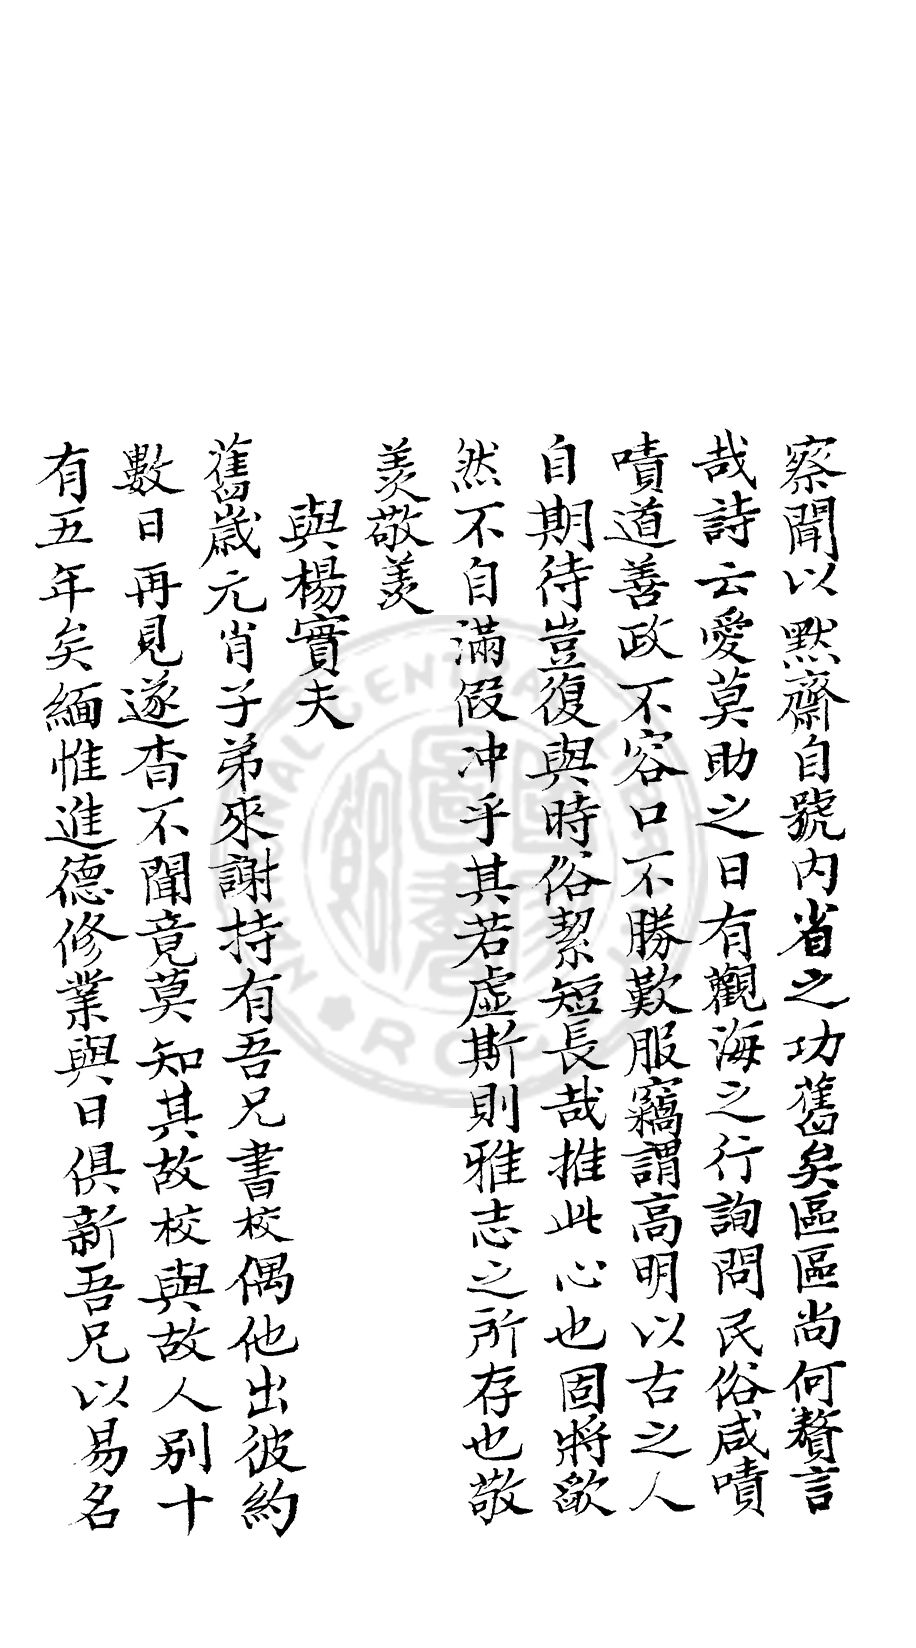 察聞以默齋自號内省之功舊矣區區尚何贅言
哉詩云愛莫助之日有觀海之行詢問民俗咸嘖
嘖道善政不容口不勝歎服竊謂高明以古之人
自期待豈復與時俗絜短長哉推此心也固將歉
然不自滿假冲乎其若虛斯則雅志之所存也敬
羨敬羨
與楊實夫
舊歲元肖子弟來謝持有吾兄書校偶他出彼約
數日再見遂杳不聞竟莫知其故校與故人別十
有五年矣緬惟進德修業與日俱新吾兄以易名
NATIONAL CENTRAL LIBRARY
R.O.C.